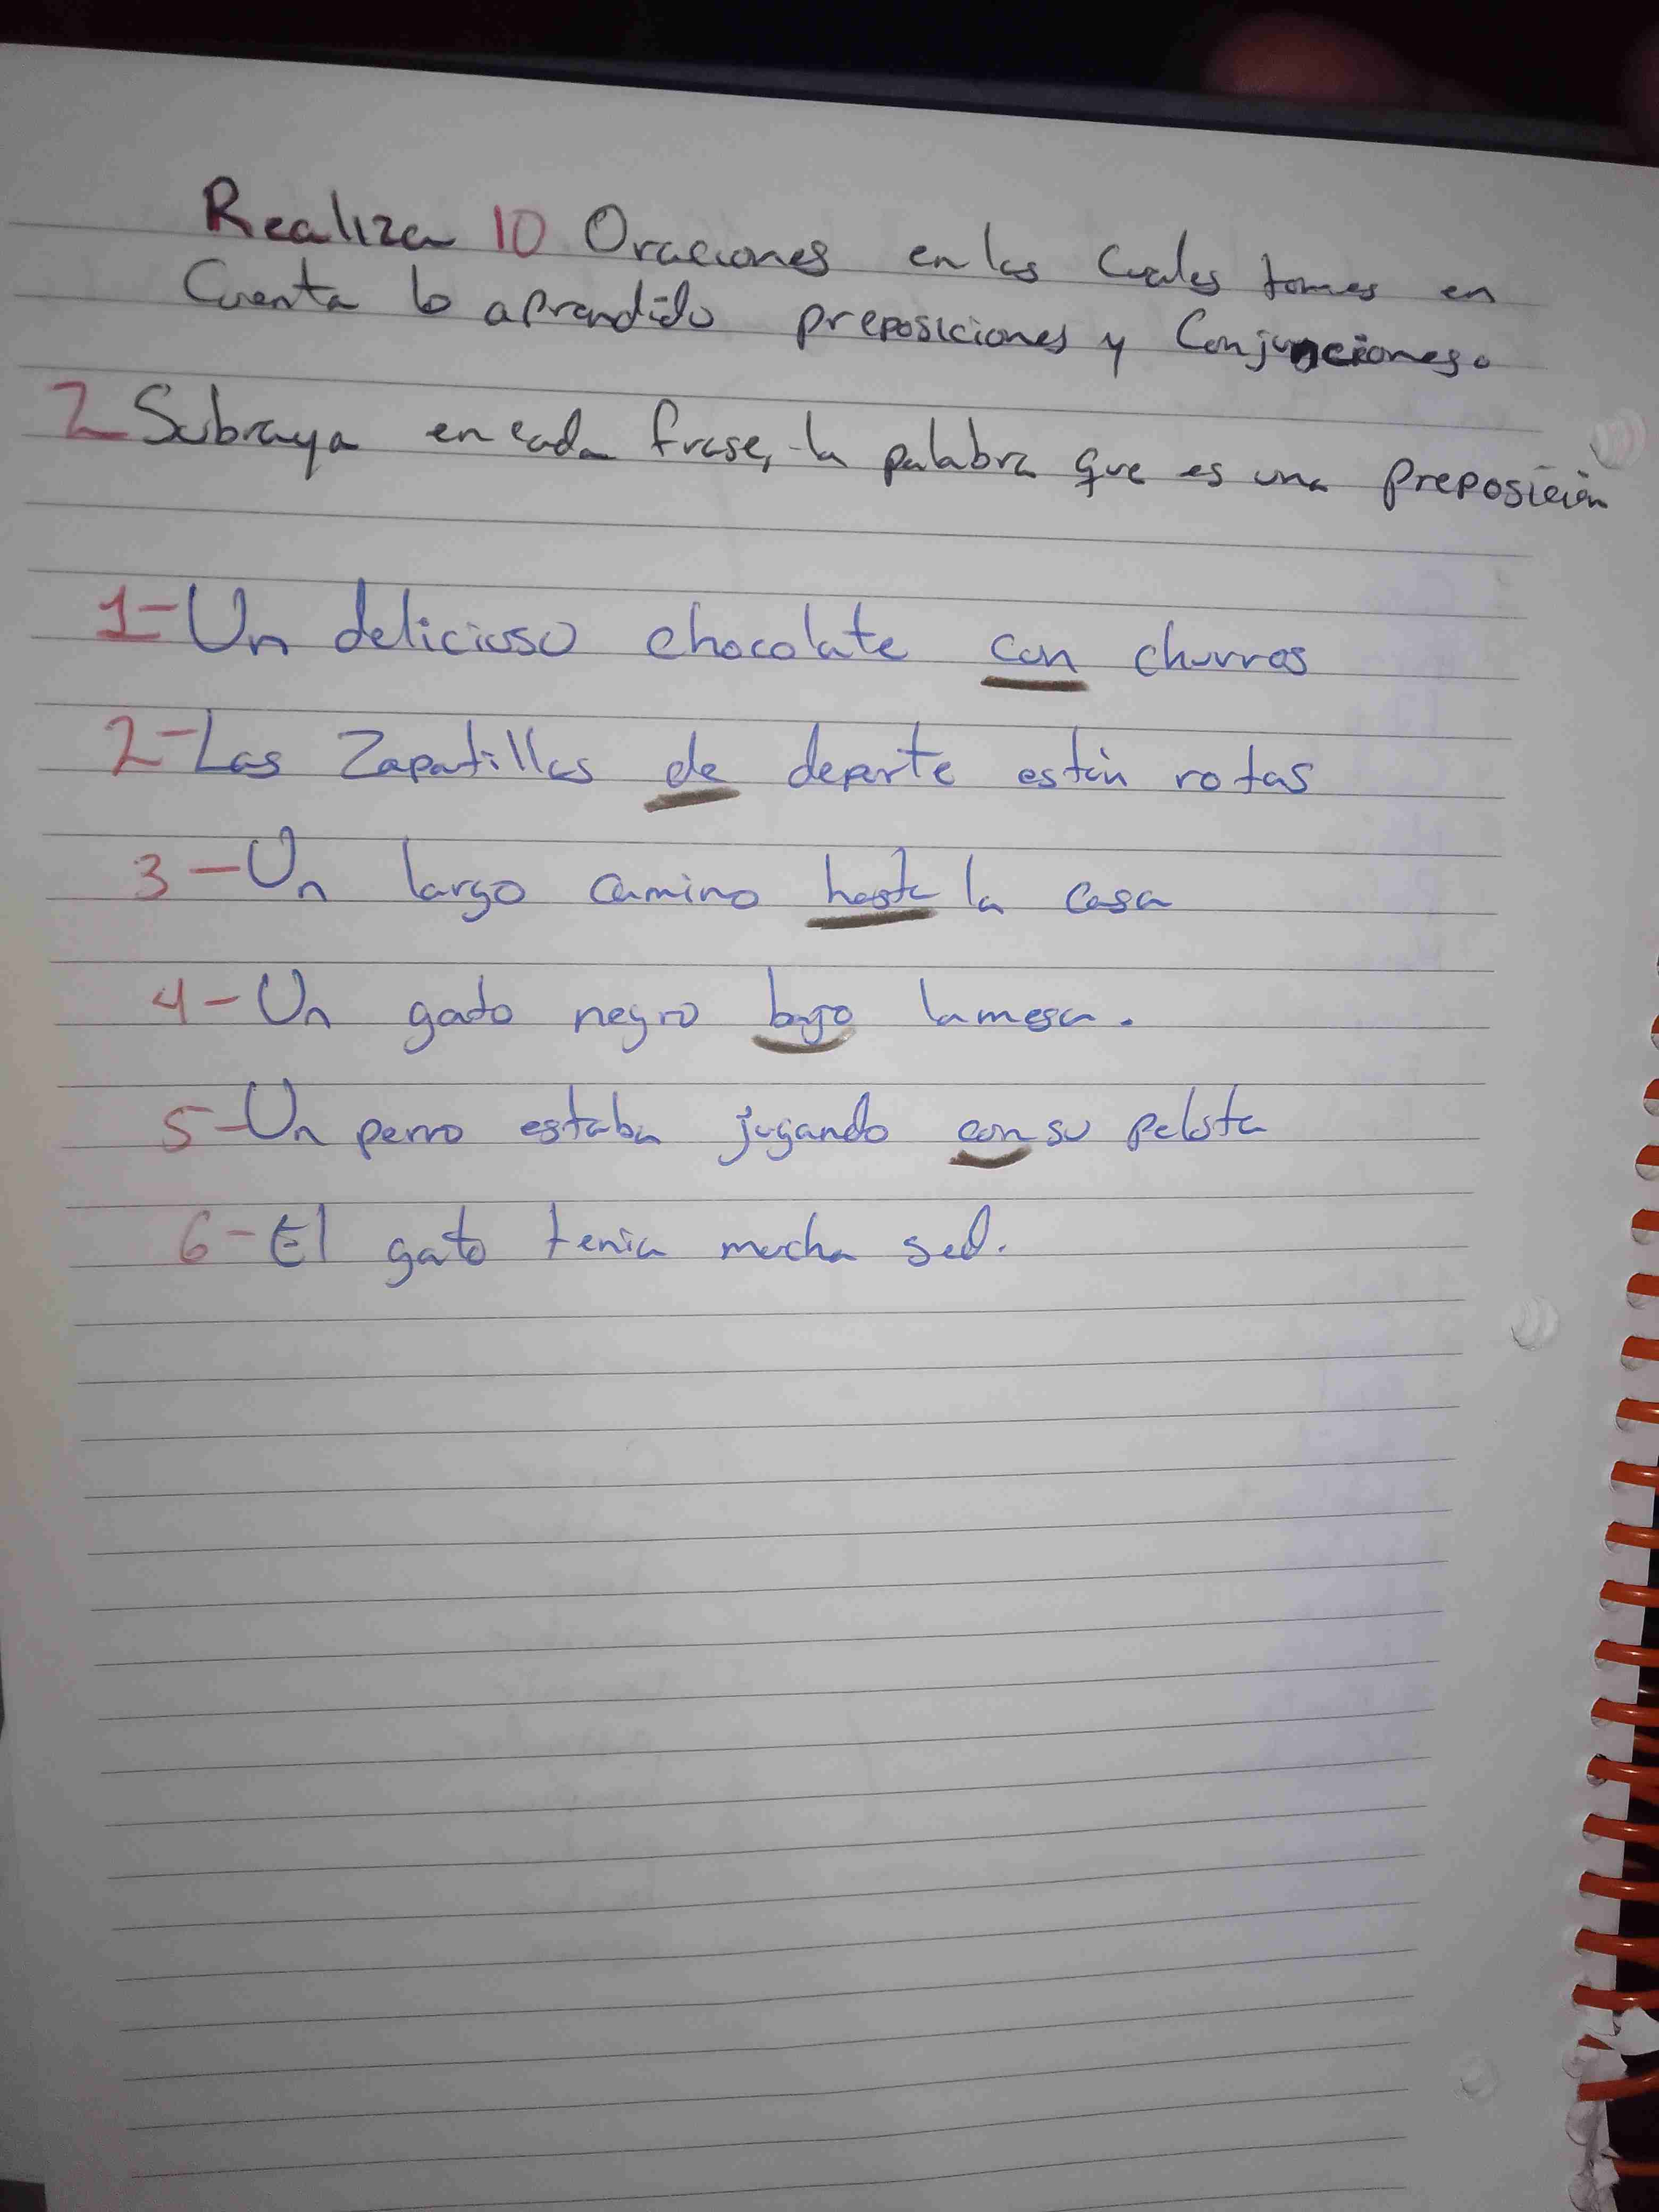 Realiza 10 Oraciones en las Cuales tomes en
Cuenta lo aprendido preposiciones y Conjunciones.
2 Subraya en cada frase, la palabra que es una preposición
1- Un delicioso chocolate con churros
2- Las Zapatillas de deporte están rotas
3- Un largo camino hasta la casa
4- Un gato negro bajo la mesa.
5- Un perro estaba jugando con su pelota
6- El gato tenia mucha sed.